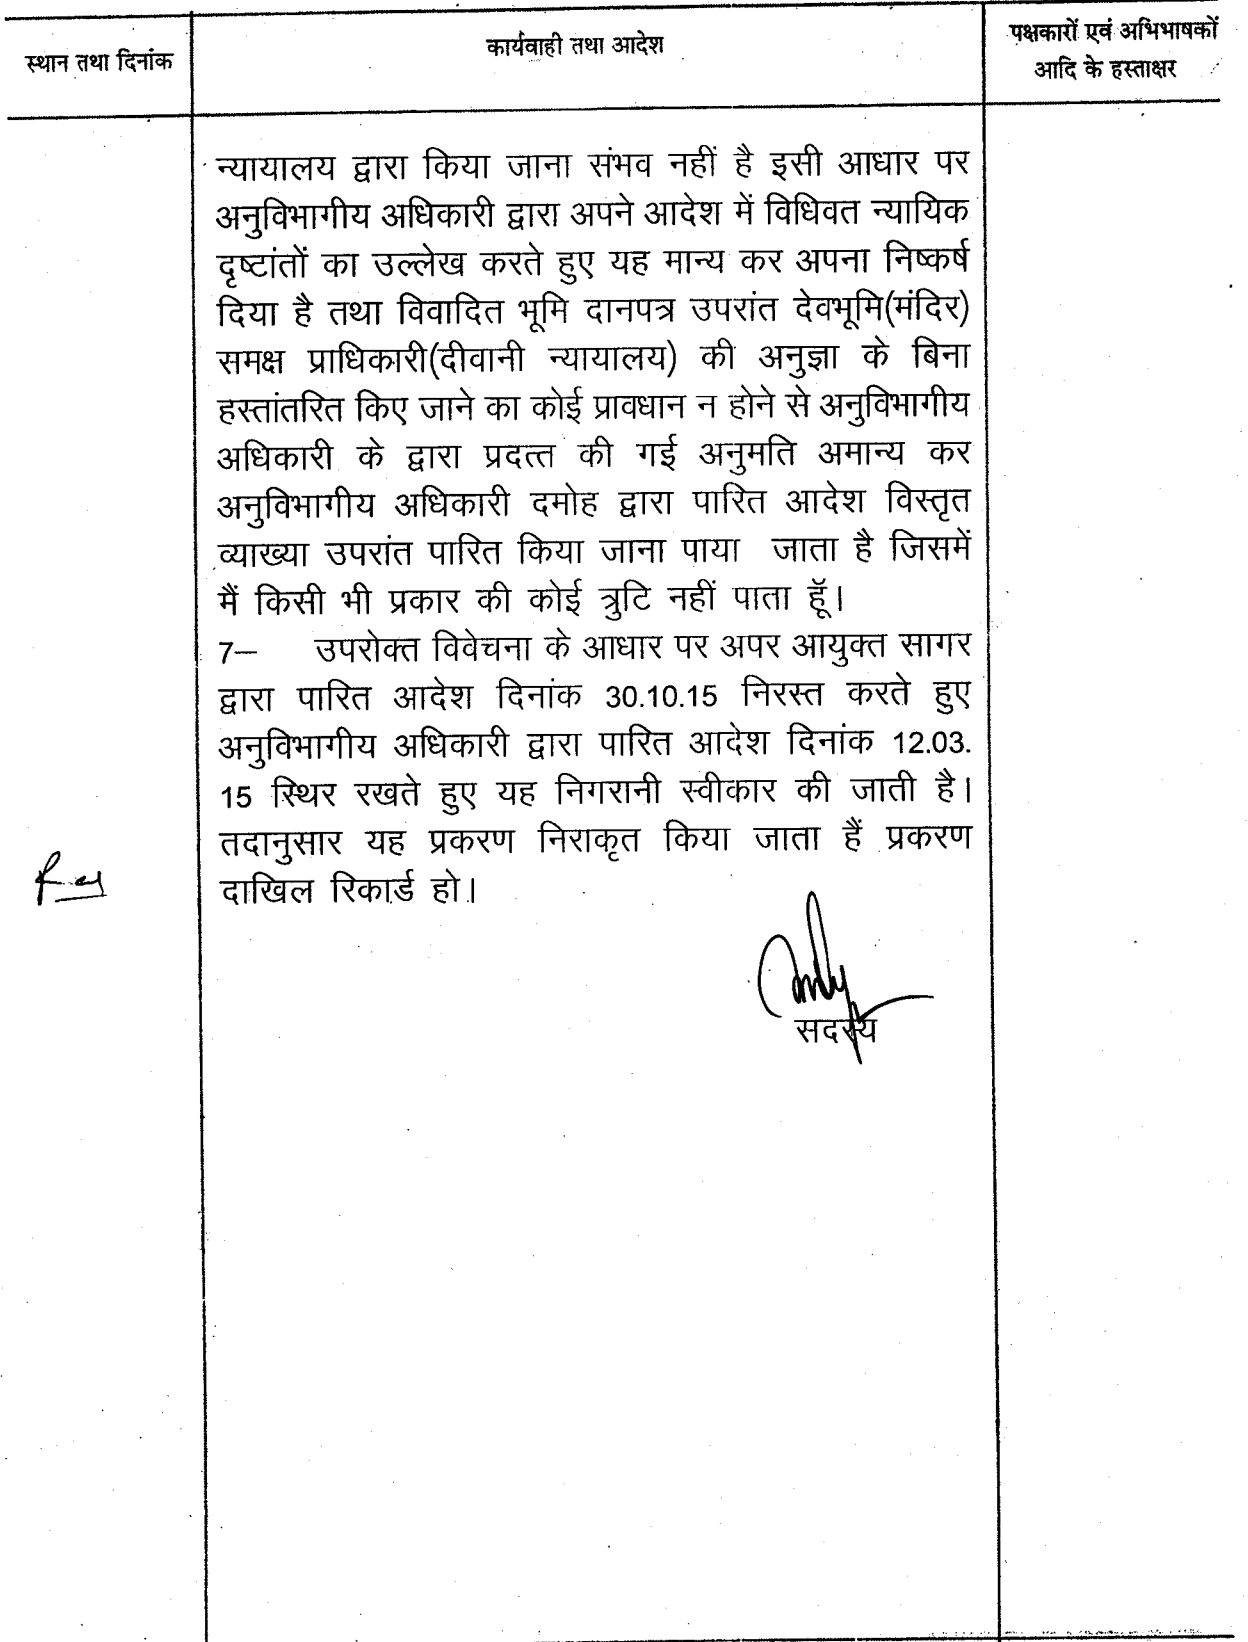 स्थान तथा दिनांक
कार्यवाही तथा आदेश
पक्षकारों एवं अभिभाषकों
आदि के हस्ताक्षर
न्यायालय द्वारा किया जाना संभव नहीं है इसी आधार पर
अनुविभागीय अधिकारी द्वारा अपने आदेश में विधिवत न्यायिक
दृष्टांतों का उल्लेख करते हुए यह मान्य कर अपना निष्कर्ष
दिया है तथा विवादित भूमि दानपत्र उपरांत देवभूमि(मंदिर)
समक्ष प्राधिकारी(दीवानी न्यायालय) की अनुज्ञा के बिना
हस्तांतरित किए जाने का कोई प्रावधान न होने से अनुविभागीय
अधिकारी के द्वारा प्रदत्त की गई अनुमति अमान्य कर
अनुविभागीय अधिकारी दमोह द्वारा पारित आदेश विस्तृत
व्याख्या उपरांत पारित किया जाना पाया जाता है जिसमें
मैं किसी भी प्रकार की कोई त्रुटि नहीं पाता हूॅ।
7– उपरोक्त विवेचना के आधार पर अपर आयुक्त सागर
द्वारा पारित आदेश दिनांक 30.10.15 निरस्त करते हुए
अनुविभागीय अधिकारी द्वारा पारित आदेश दिनांक 12.03.
15 स्थिर रखते हुए यह निगरानी स्वीकार की जाती है।
तदानुसार यह प्रकरण निराकृत किया जाता हैं प्रकरण
दाखिल रिकार्ड हो।
सदस्य